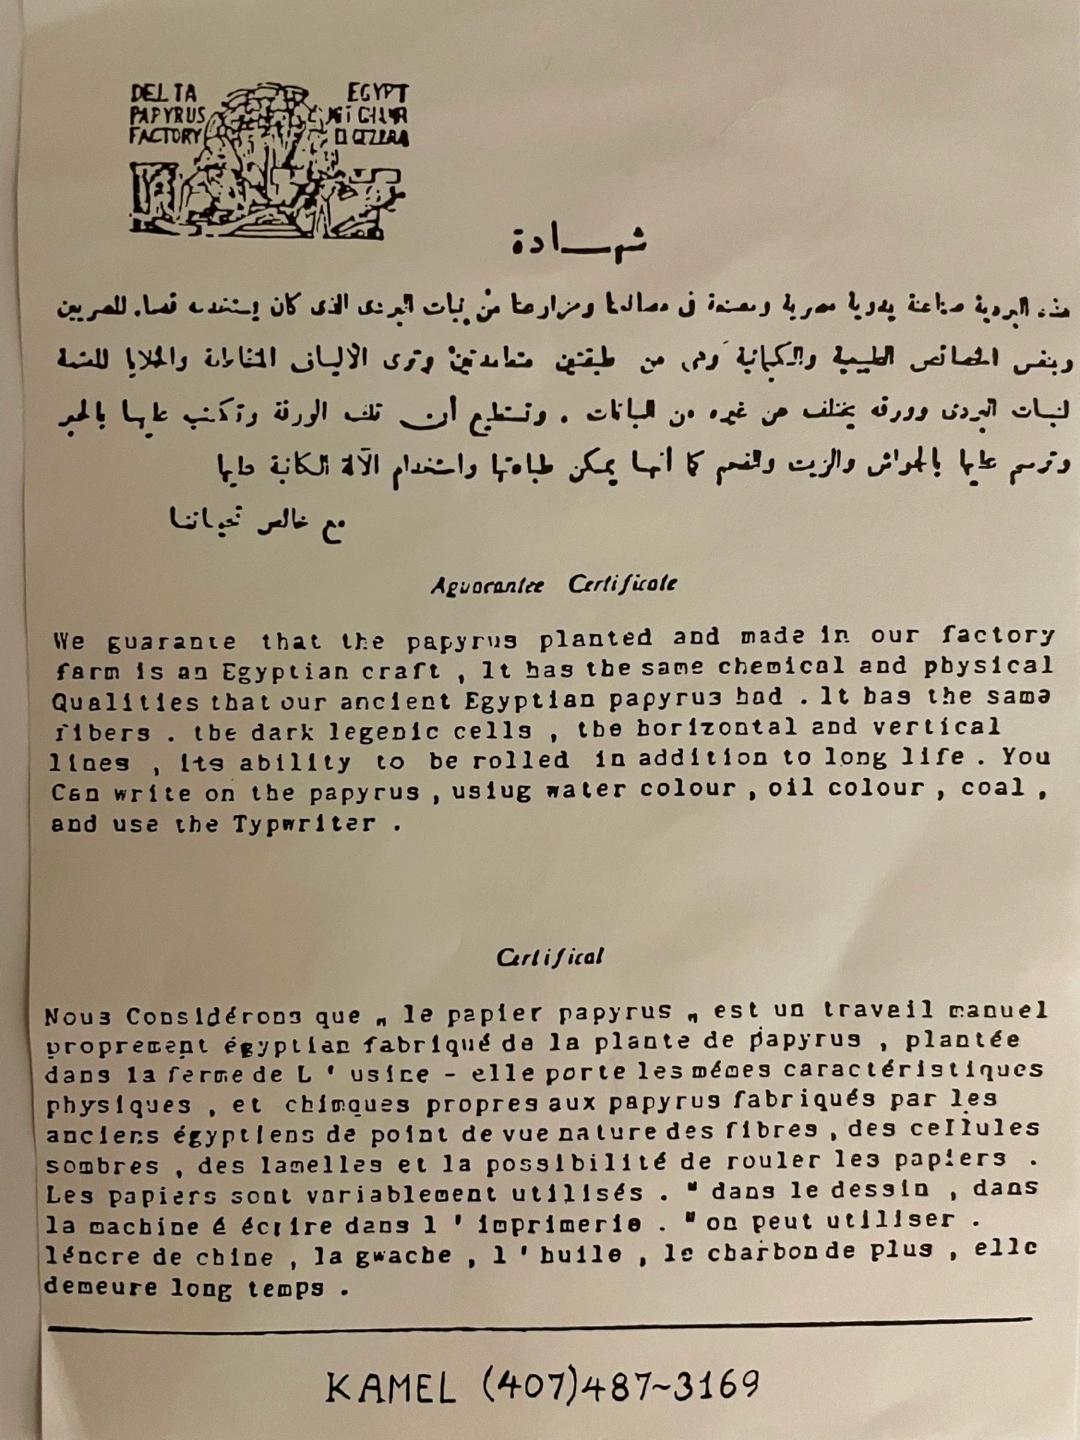 DELTA
PAPYRUS
FACTORY
EGYPT
شهادة
هذه البردية صناعة يدوية مصرية ومصنعة فى مصانعنا ومزارعنا من نبات البردى الذى كان يستخدمه قدماء المصريين
وبنفس الخصائص الطبيعية والكيميائية وهى من طبقتين متعامدتين وترى الألياف المتقاطعة والخلايا المعتمة
لنبات البردى وورقه يختلف عن غيره من النباتات . وتستطيع أن تلف الورقة وتكتب عليها بالحبر
وترسم عليها بالجواش والزيت والفحم كما أنها يمكن طباعتها واستخدام الآلة الكاتبة عليها
مع خالص تحياتنا
Aguarantee Certificate
We guarante that the papyrus planted and made in our factory
farm is an Egyptian craft , It has the same chemical and physical
Qualities that our ancient Egyptian papyrus had . It has the same
fibers . the dark legenic cells , the horizontal and vertical
lines , its ability to be rolled in addition to long life . You
Can write on the papyrus , usiug water colour , oil colour , coal ,
and use the Typwriter .
Certifical
Nous Considérons que „ le papier papyrus „ est un travail manuel
proprement égyptian fabriqué de la plante de papyrus , plantée
dans la ferme de L ' usine - elle porte les mémes caractéristiques
physiques , et chimques propres aux papyrus fabriqués par les
anciens égyptiens de point de vue nature des fibres , des cellules
sombres , des lamelles et la possibilité de rouler les papiers .
Les papiers sont variablement utilisés . " dans le dessin , dans
la machine é écrire dans l ' imprimerie . " on peut utiliser .
léncre de chine , la gwache , l ' huile , le charbon de plus , elle
demeure long temps .
KAMEL (407)487~3169